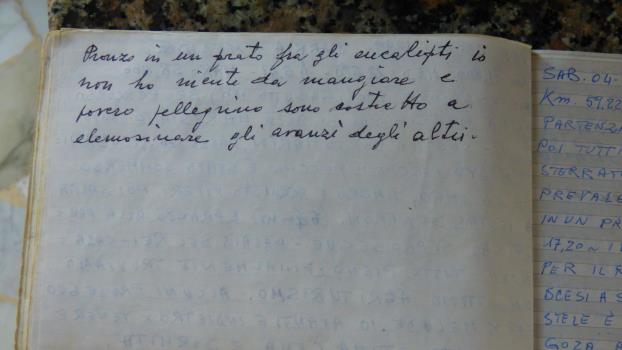 Pranzo in un prato fra gli eucalipti io
non ho niente da mangiare e
povero pellegrino sono costretto a
elemosinare gli avanzi degli altri.
SAB. 04-
Km. 59,22
PARTENZA
POI TUTTI
STERRAT
PREVALE
IN UN PR
17,20 ~ 1
PER IL R
SCESI A S
STELE È
GOZA A